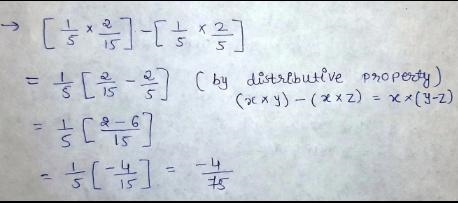 → [1/5 × 2/15] - [1/5 × 2/5]
= 1/5 [2/15 - 2/5] (by distributive property)
(x × y) - (x × z) = x × (y-z)
= 1/5 [2-6/15]
= 1/5 [-4/15] = -4/75